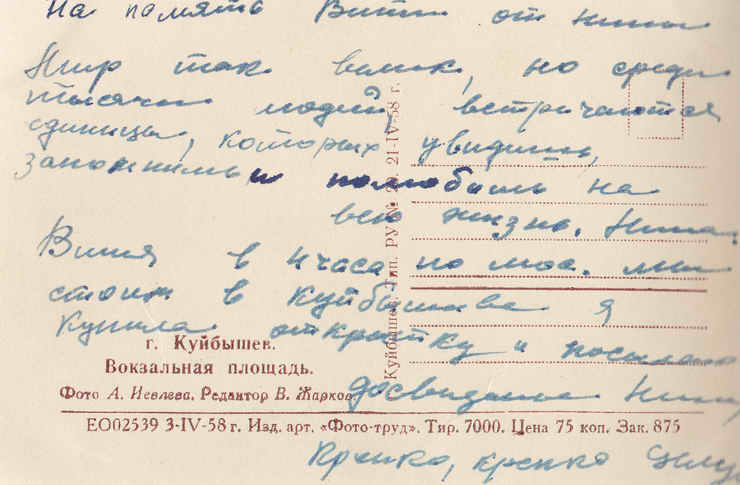 На память Вити от Нины
Мир так велик, но среди
тысячи людей встречаются
единицы, которых увидишь,
запомнишь и полюбишь на
всю жизнь. Нина.
Витя в 4 часа по мос. мы
стоим в Куйбышеве я
купила открытку и посылаю
досвидание Нина
Крепко, крепко целую
г. Куйбышев.
Вокзальная площадь.
Фото А. Иевлева. Редактор В. Жарков.
ЕО02539 3-IV-58 г. Изд. арт. «Фото-труд». Тир. 7000. Цена 75 коп. Зак. 875
Куйбышев, Тип. РУ № 21-IV-58 г.